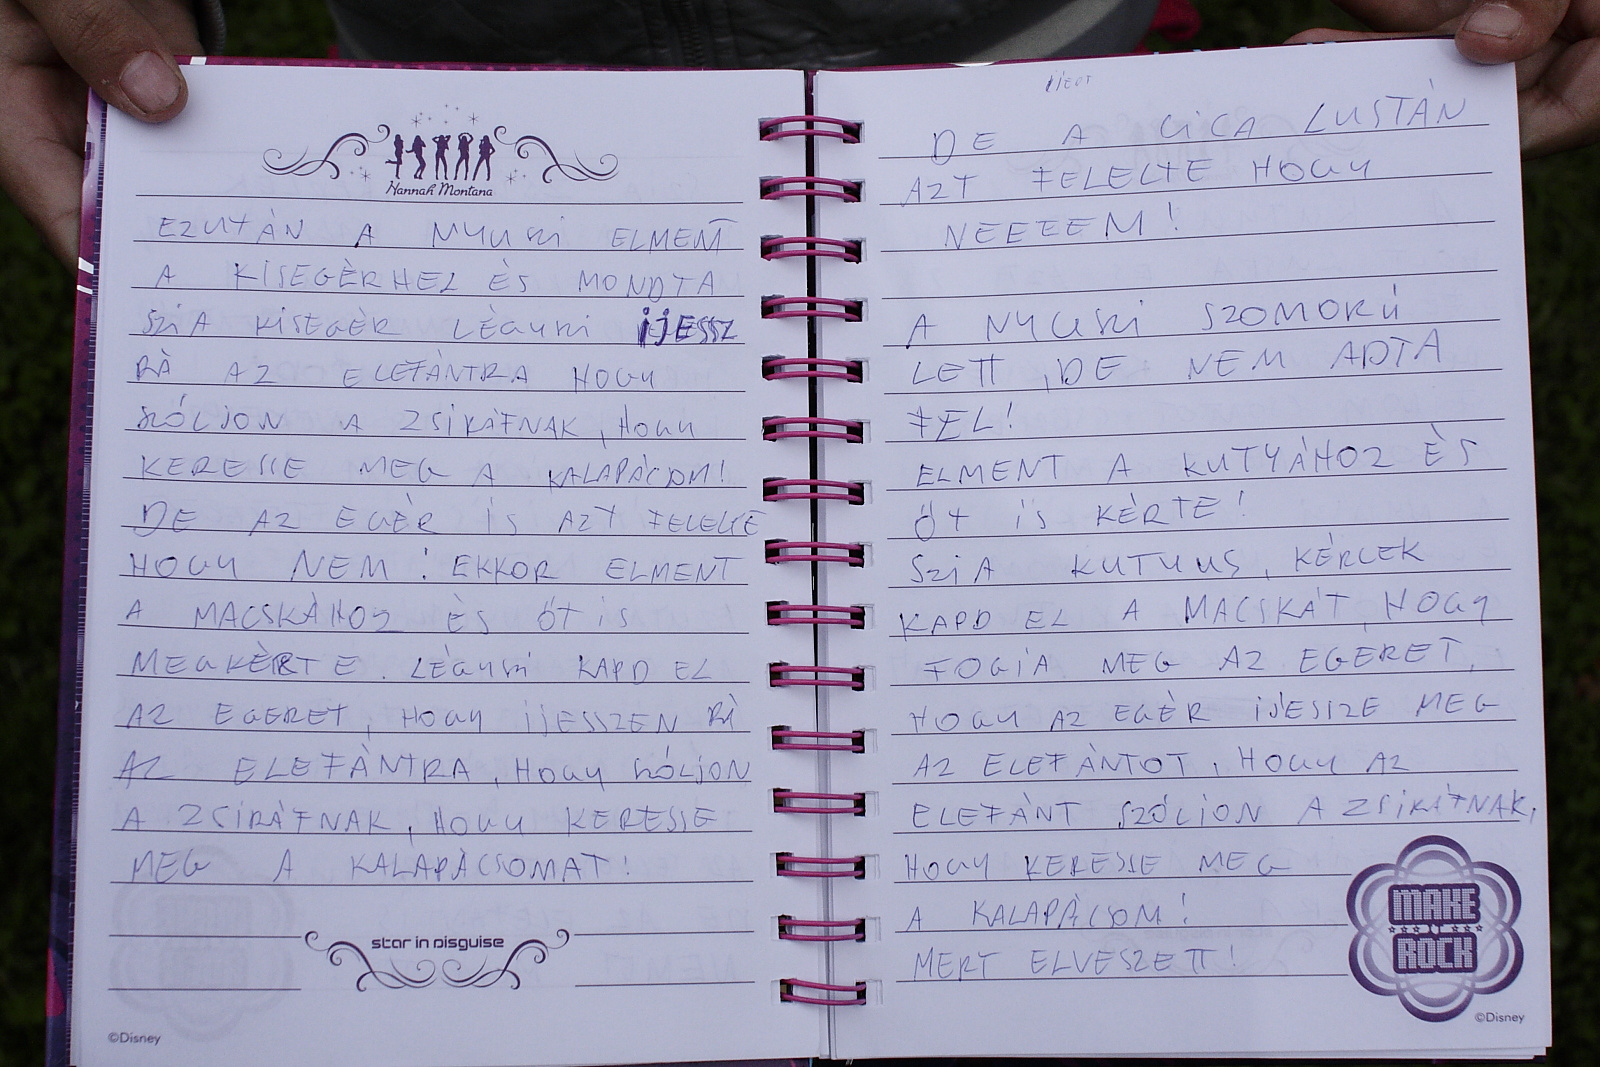 Hannah Montana
EZUTÁN A NYUSZI ELMENT
A KISEGÈRHEZ ÈS MONDTA
SZIA KISEGÈR LÉGYSZI IJESSZ
RÀ AZ ELEFÀNTRA HOGY
SZÓLJON A ZSIRÁFNAK, HOGY
KERESSE MEG A KALAPÁCSOM!
DE AZ EGÉR IS AZT FELELTE
HOGY NEM! EKKOR ELMENT
A MACSKÀHOZ ÈS ŐT IS
MEGKÈRTE. LÉGYSZI KAPD EL
AZ EGERET, HOGY IJESSZEN RÀ
AZ ELEFÀNTRA, HOGY SZÓLJON
A ZSIRÁFNAK, HOGY KERESSE
MEG A KALAPÁCSOMAT!
star in disguise
©Disney
DE A CICA LUSTÁN
AZT FELELTE HOGY
NEEEEM!
A NYUSZI SZOMORÚ
LETT, DE NEM ADTA
FEL!
ELMENT A KUTYÁHOZ ÈS
ŐT IS KÉRTE!
SZIA KUTYUS, KÉRLEK
KAPD EL A MACSKÁT, HOGY
FOGJA MEG AZ EGERET,
HOGY AZ EGÈR IJESSZE MEG
AZ ELEFÀNTOT, HOGY AZ
ELEFÁNT SZÓLJON A ZSIRÁFNAK,
HOGY KERESSE MEG
A KALAPÁCSOM!
MERT ELVESZETT!
MAKE
IT
ROCK
©Disney